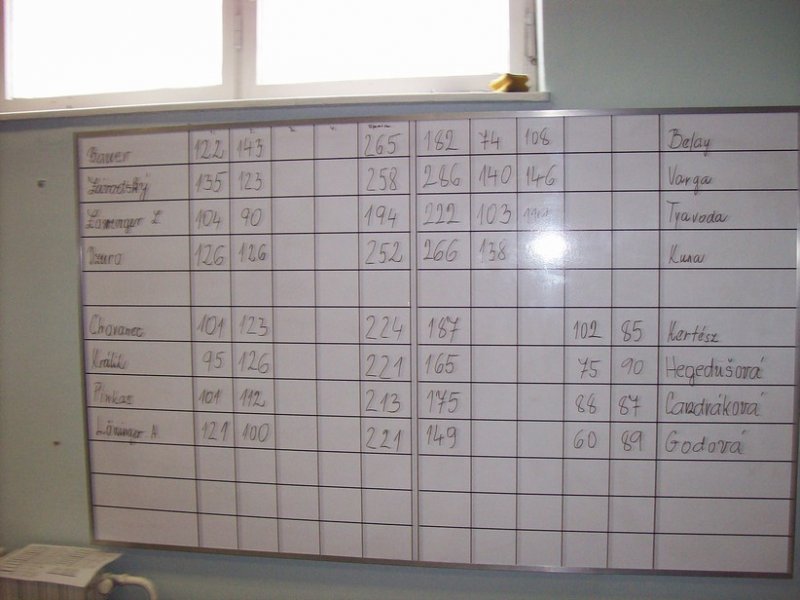 Bauer 122 143 265 182 74 108 Belay
135 123 258 286 140 146 Varga
104 90 194 222 103 Tyavoda
Dzuro 126 126 252 266 138 Kusa
Chovanec 101 123 224 187 102 85 Kertész
Králik 95 126 221 165 75 90 Hegedüšová
Pinkas 101 112 213 175 88 87 Candráková
121 100 221 149 60 89 Godová